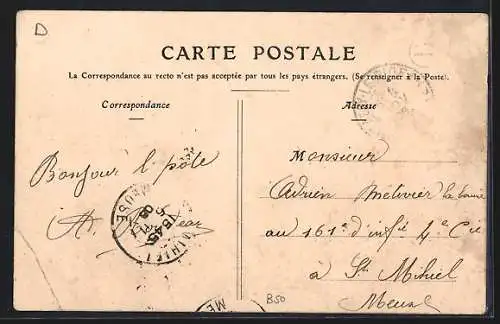 D
CARTE POSTALE
La Correspondance au recto n'est pas acceptée par tous les pays étrangers. (Se renseigner à la Poste).
Correspondance
Adresse
Monsieur
Bonjour l pôte
Adrien Métivier
A.
au 161e d'infie 4e Cie
à St Mihiel
Meuse
MEUSE
B50